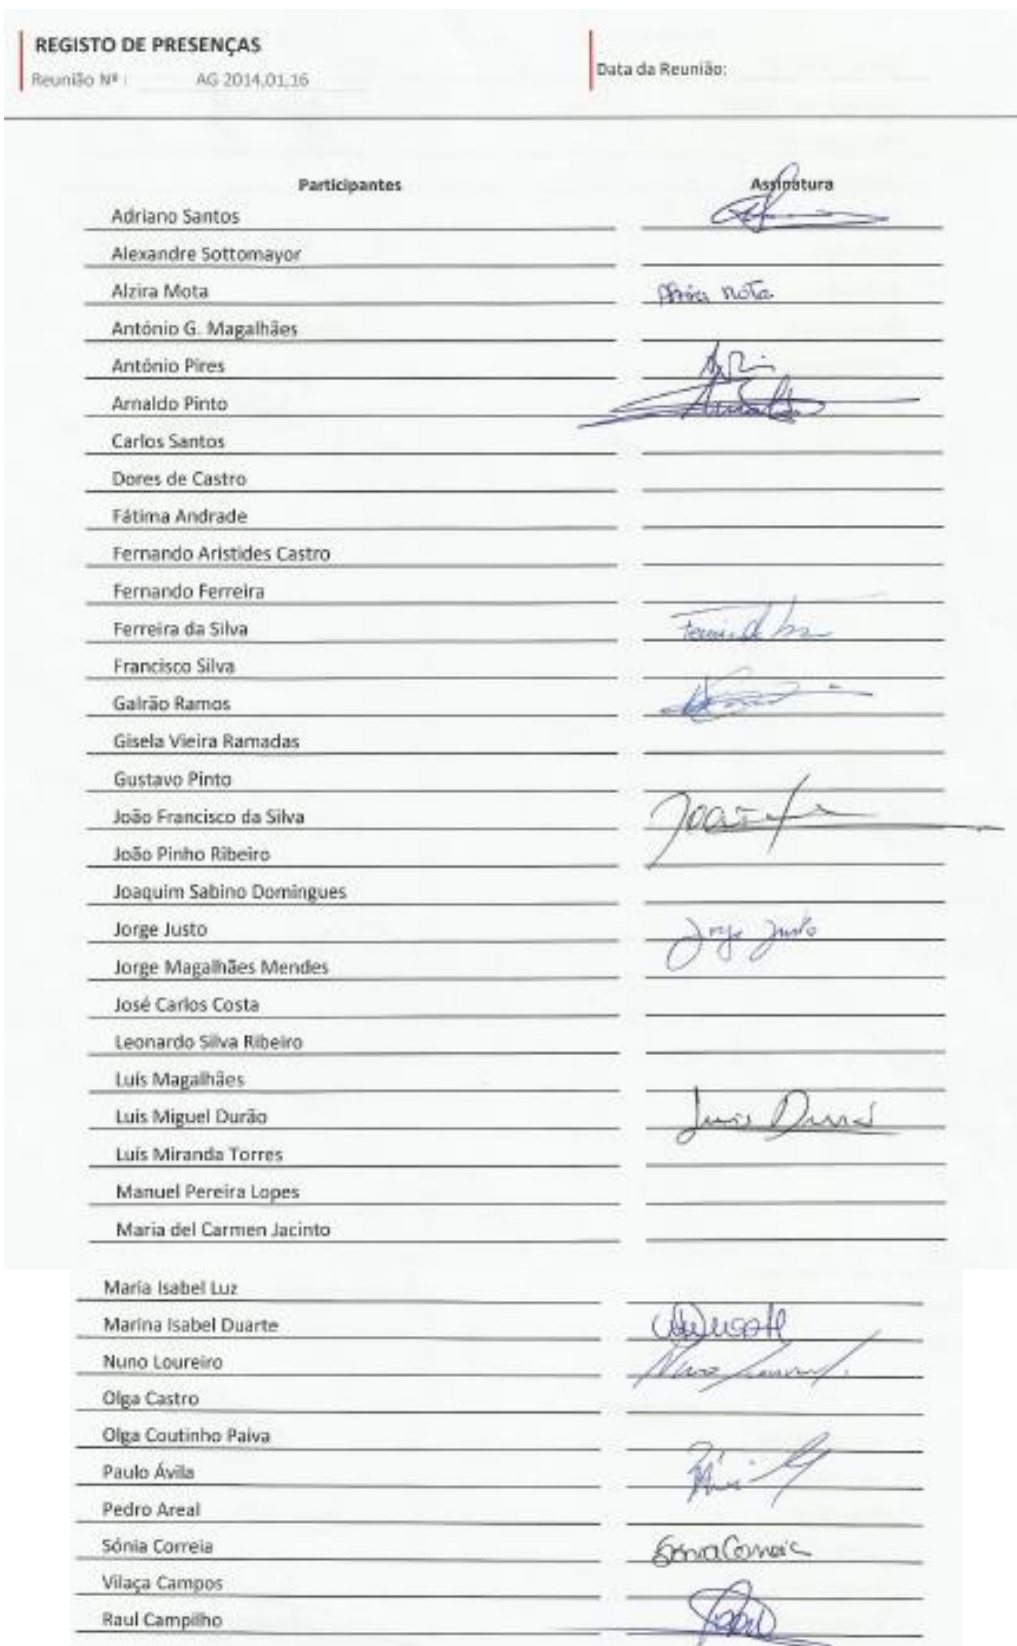 REGISTO DE PRESENÇAS
Reunião Nº : AG 2014,01,16
Data da Reunião:
Participantes Assinatura
Adriano Santos
Alexandre Sottomayor
Alzira Mota Alzira Mota
António G. Magalhães
António Pires
Arnaldo Pinto Arnaldo
Carlos Santos
Dores de Castro
Fátima Andrade
Fernando Aristides Castro
Fernando Ferreira
Ferreira da Silva
Francisco Silva
Galrão Ramos
Gisela Vieira Ramadas
Gustavo Pinto
João Francisco da Silva João
João Pinho Ribeiro
Joaquim Sabino Domingues
Jorge Justo Jorge Justo
Jorge Magalhães Mendes
José Carlos Costa
Leonardo Silva Ribeiro
Luís Magalhães
Luis Miguel Durão Luis Durão
Luís Miranda Torres
Manuel Pereira Lopes
Maria del Carmen Jacinto
Maria Isabel Luz
Marina Isabel Duarte
Nuno Loureiro Nuno Loureiro
Olga Castro
Olga Coutinho Paiva
Paulo Ávila
Pedro Areal
Sónia Correia Sónia Correia
Vilaça Campos
Raul Campilho